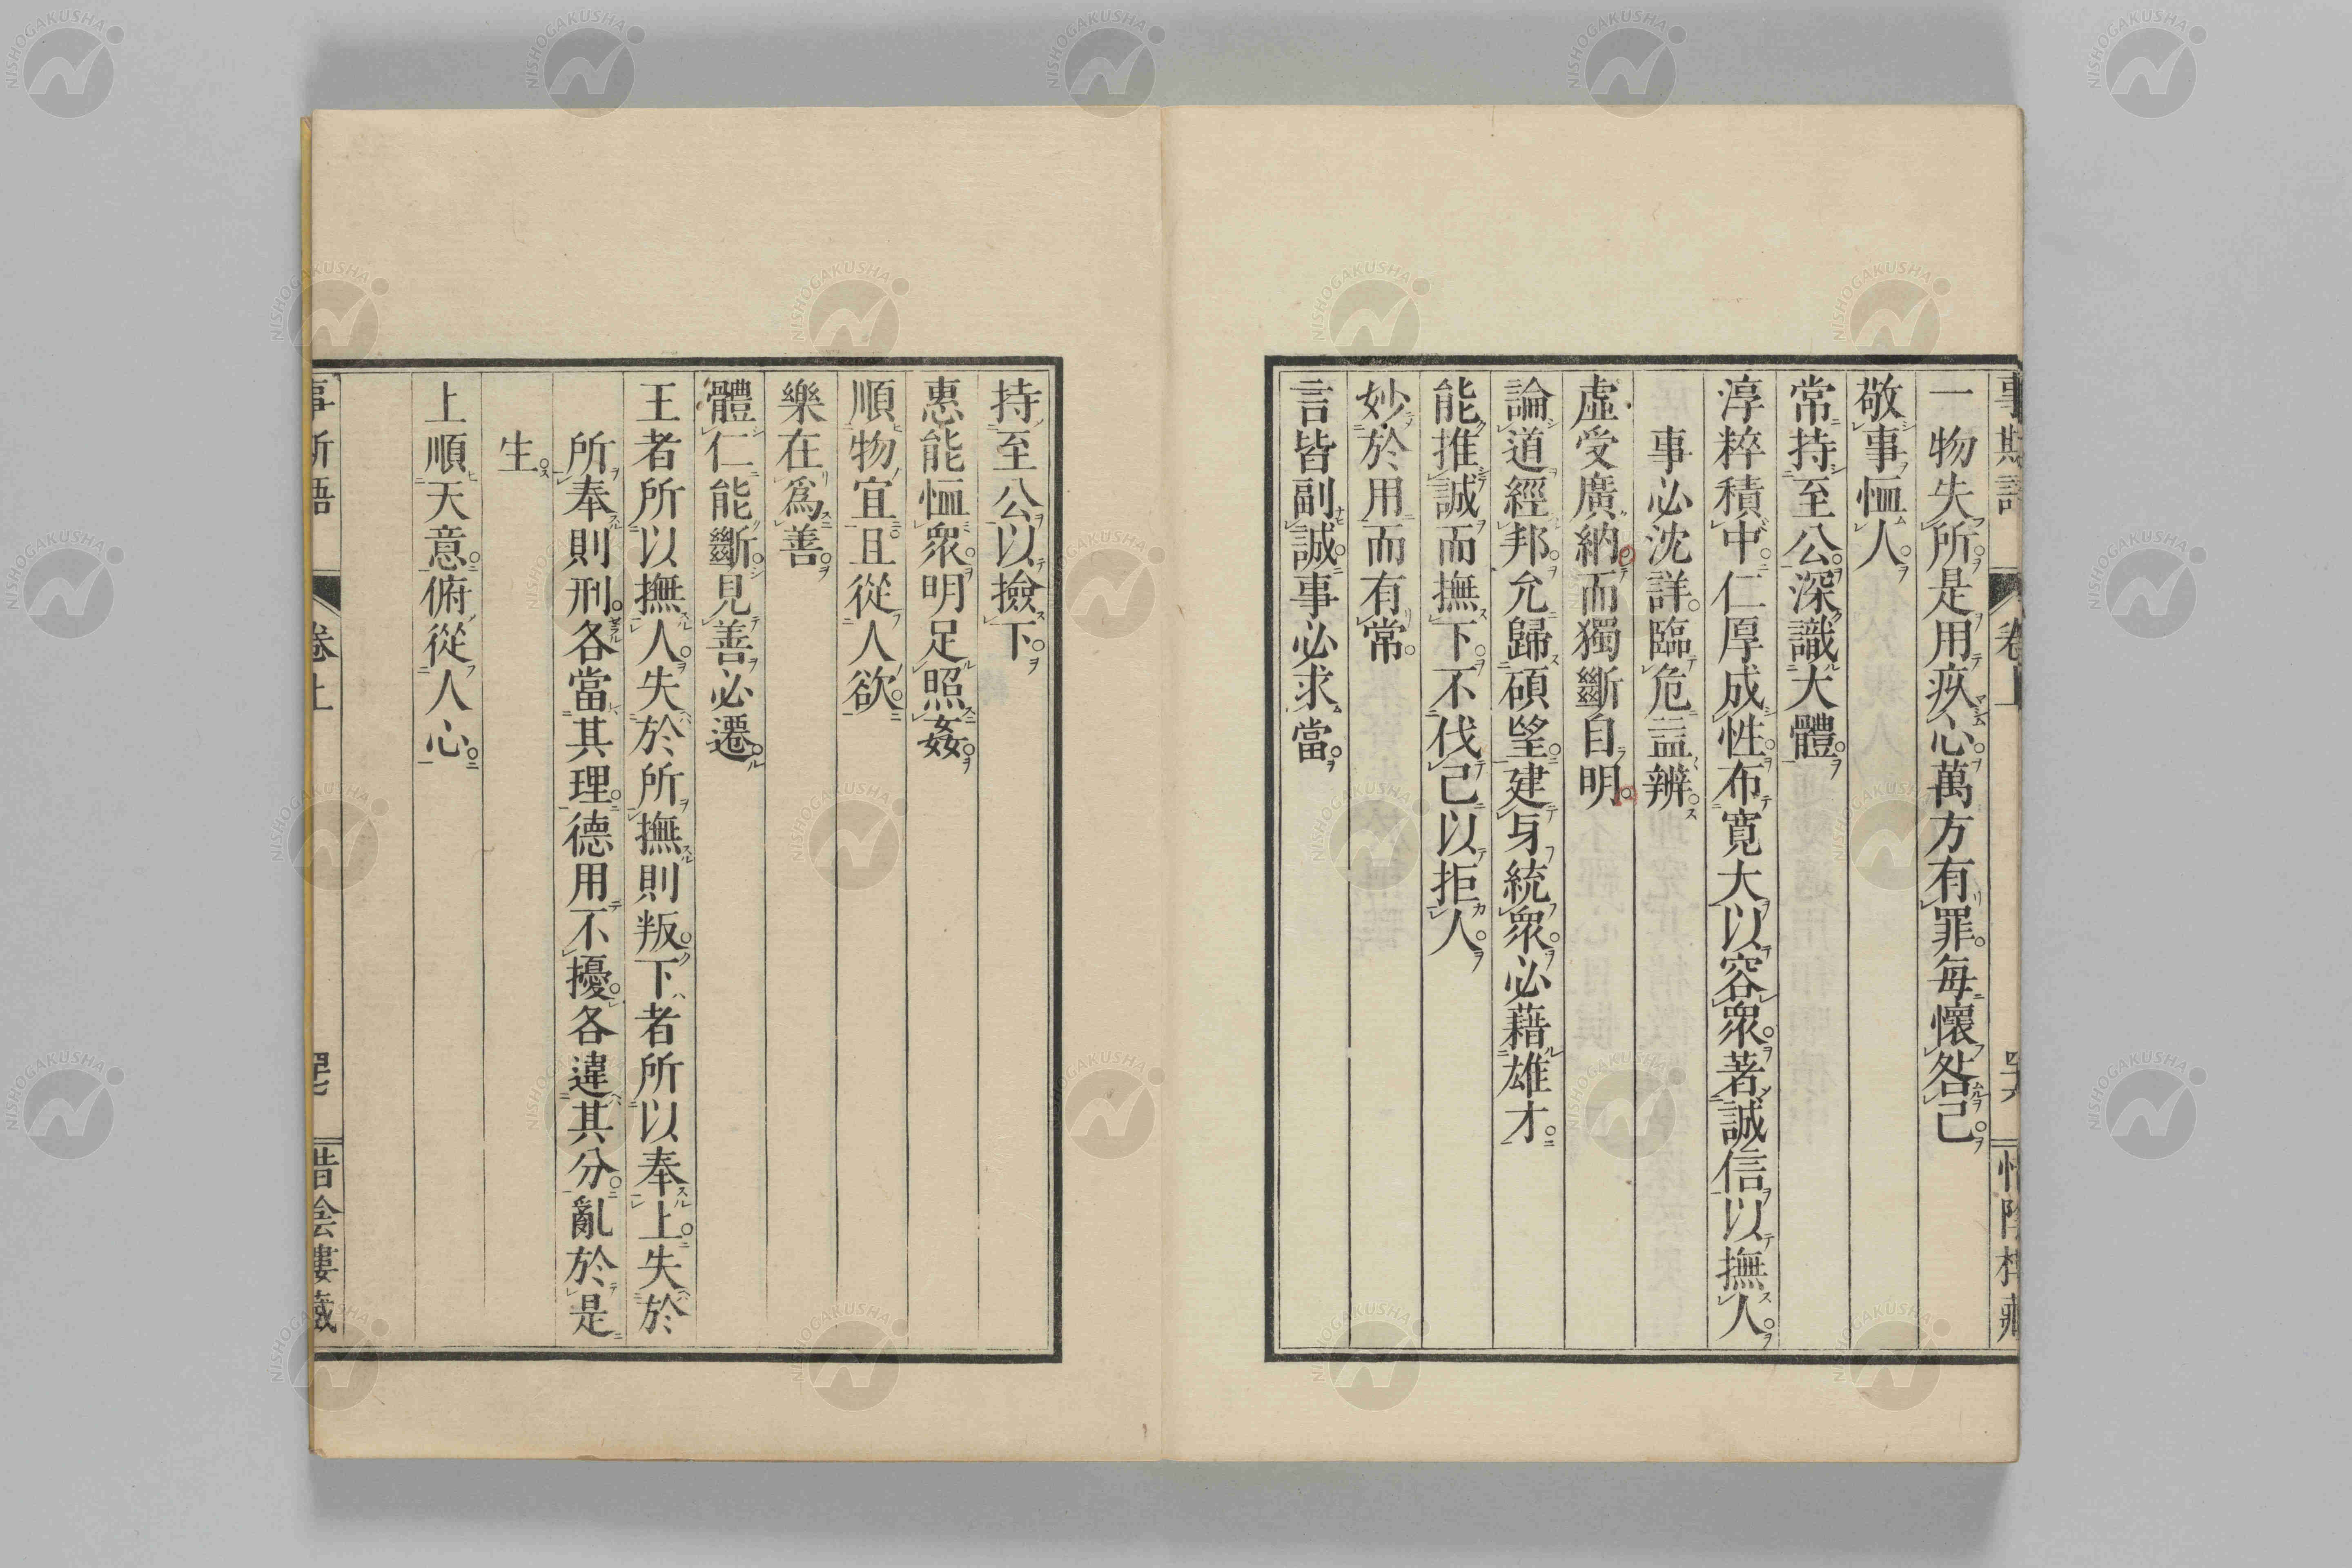 事斯語 卷上 四六 惜陰樓藏
一物失所是用疚心萬方有罪每懷咎己
敬事恤人
常持至公深識大體
淳粹積中仁厚成性布寬大以容衆著誠信以撫人
事必沈詳臨危益辨
虛受廣納而獨斷自明
論道經邦允歸碩望建身統衆必藉雄才
能推誠而撫下不伐己以拒人
妙於用而有常
言皆副誠事必求當
持至公以撿下
惠能恤衆明足照姦
順物宜且從人欲
樂在爲善
體仁能斷見善必遷
王者所以撫人失於所撫則叛下者所以奉上失於
所奉則刑各當其理德用不擾各違其分亂於是
生
上順天意俯從人心
事斯語 卷上 四七 惜陰樓藏
NISHOGAKUSHA